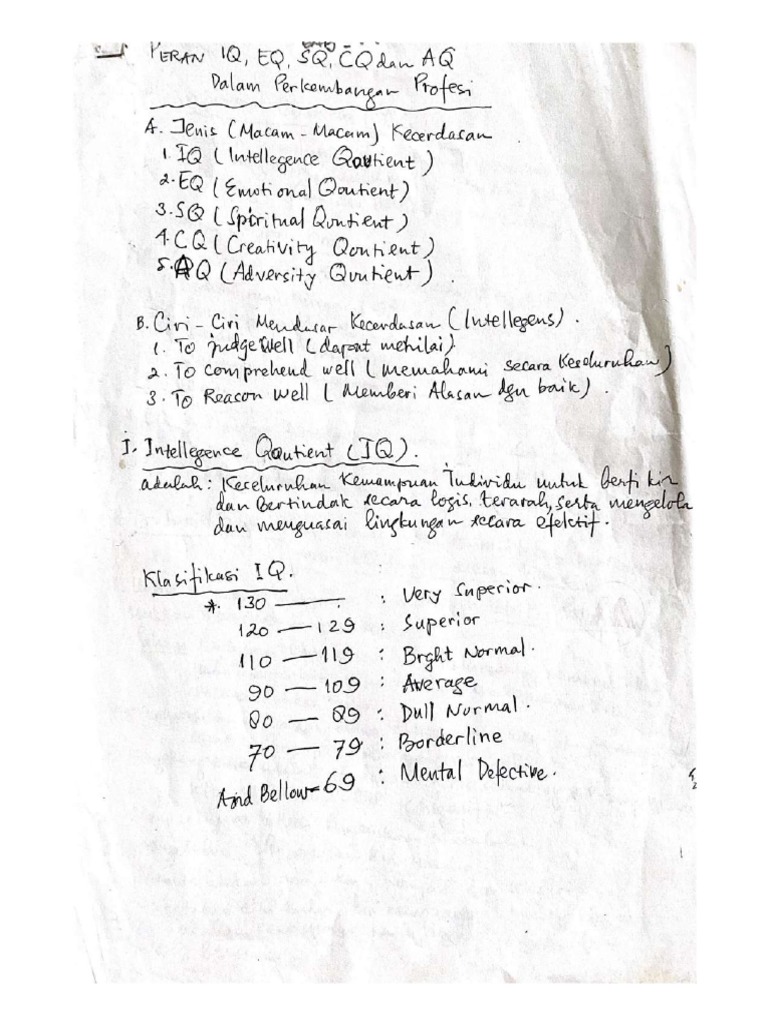 PERAN IQ, EQ, SQ, CQ dan AQ
Dalam Perkembangan Profesi
A. Jenis (Macam - Macam) Kecerdasan
1. IQ (Intellegence Qoutient)
2. EQ (Emotional Qoutient)
3. SQ (Spiritual Qoutient)
4. CQ (Creativity Qoutient)
5. AQ (Adversity Qoutient).
B. Ciri - Ciri Mendasar Kecerdasan (Intellegens).
1. To judge well (dapat menilai)
2. To comprehend well (memahami secara keseluruhan)
3. To Reason Well (Memberi Alasan dgn baik).
I. Intellegence Qoutient (IQ).
adalah: Keseluruhan Kemampuan Individu untuk berfikir
dan Bertindak secara logis, terarah, serta mengelola
dan menguasai lingkungan secara efektif.
Klasifikasi IQ.
*. 130 — : Very Superior.
120 — 129 : Superior
110 — 119 : Brght Normal.
90 — 109 : Average
80 — 89 : Dull Normal.
70 — 79 : Borderline
And Bellow = 69 : Mental Defective.